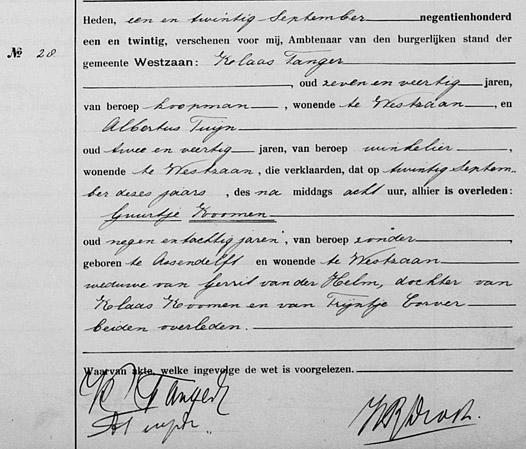 Heden, een en twintig September negentienhonderd
No 28 een en twintig, verschenen voor mij, Ambtenaar van den burgerlijken stand der
gemeente Westzaan: Klaas Tanger
, oud zeven en veertig jaren,
van beroep koopman, wonende te Westzaan, en
Albertus Tuijn
oud twee en veertig jaren, van beroep winkelier,
wonende te Westzaan, die verklaarden, dat op twintig Septem-
ber dezes jaars, des na middags acht uur, alhier is overleden:
Guurtje Koomen
oud negen en tachtig jaren, van beroep zonder,
geboren te Assendelft en wonende te Westzaan
weduwe van Gerrit van der Helm, dochter van
Klaas Koomen en van Trijntje Corver
beiden overleden.
Waarvan akte, welke ingevolge de wet is voorgelezen.
K Tanger